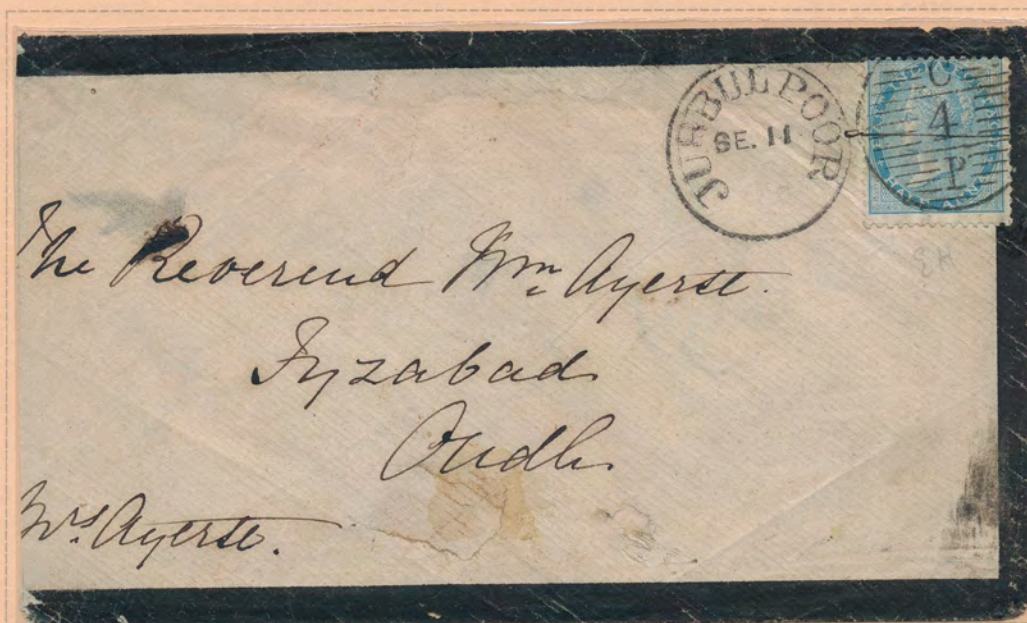 JUBBULPOOR
SE. 11
C
4
P
HALF ANNA
The Reverend Wm. Ayerst.
Fyzabad
Oudh
Mrs Ayerst.